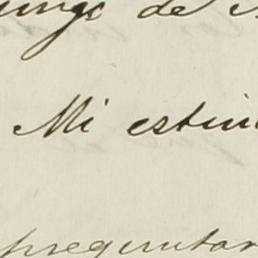 de
Mi estim
preguntar